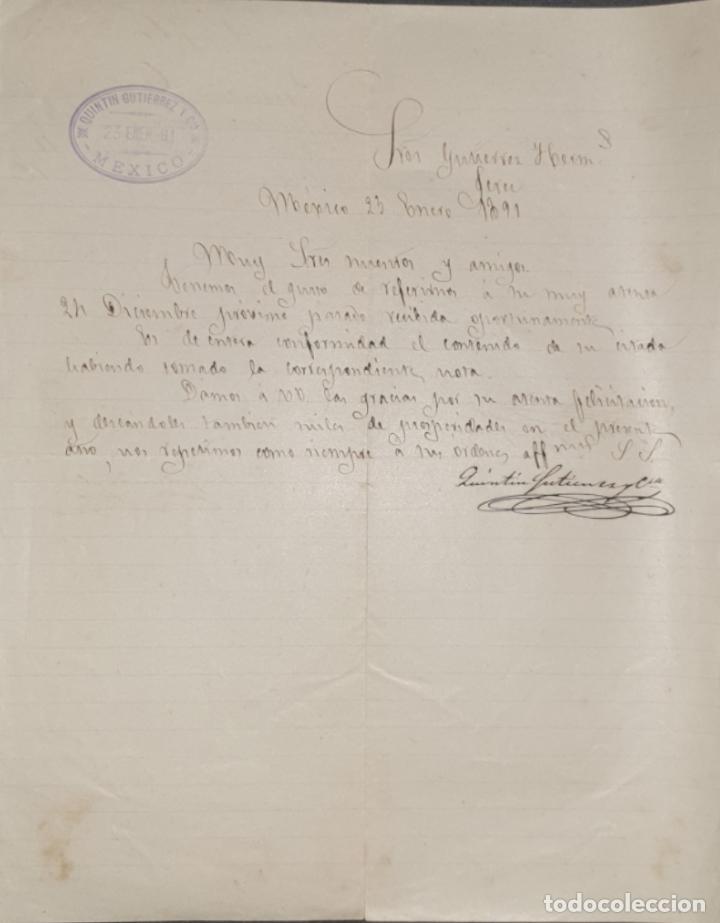 QUINTIN GUTIERREZ Y Cª
23 ENE 91
MEXICO
Sres Gutierrez Herm.s
Jerez
México 23 Enero 1891
Muy Sres nuestros y amigos
Tenemos el gusto de referirnos á su muy atenta
24 Diciembre próximo pasado recibida oportunamente
Es de entera conformidad el contenido de su citada
habiendo tomado la correspondiente nota.
Damos á VV. las gracias por su atenta felicitacion,
y deseandoles tambien miles de prosperidades en el presente
año, nos repetimos como siempre á sus ordenes affmos S S
Quintin Gutierrez y Cia
todocoleccion